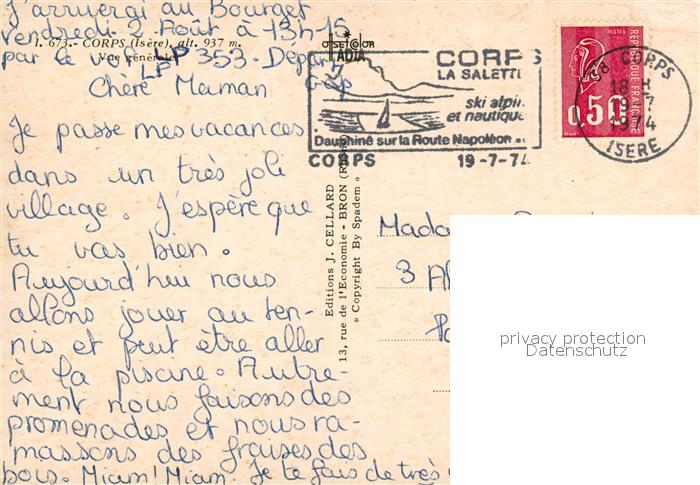 J'arriverai au Bourget
vendredi 2 Août à 13h15
par le vol LP 353. Départ
LP
Gap
I. 673. - CORPS (Isère), alt. 937 m.
Vue générale
Chère Maman
Je passe mes vacances
dans un très joli
village. J'espère que
tu vas bien.
Aujourd'hui nous
allons jouer au ten-
nis et peut être aller
à la piscine. Autre-
ment nous faisons des
promenades et nous ra-
massons des fraises des
bois. Miam! Miam. Je te fais de très
OFFSET COLOR
ADIA
CORPS
LA SALETTE
ski alpin
et nautique
Dauphiné sur la Route Napoléon
CORPS 19-7-74
POSTES
REPUBLIQUE FRANÇAISE
0,50
38 CORPS
18 H
19-7
1974
ISERE
Editions J. CELLARD
13, rue de l'Economie - BRON (Rhône)
« Copyright By Spadem »
Mada
3 A
privacy protection
Datenschutz